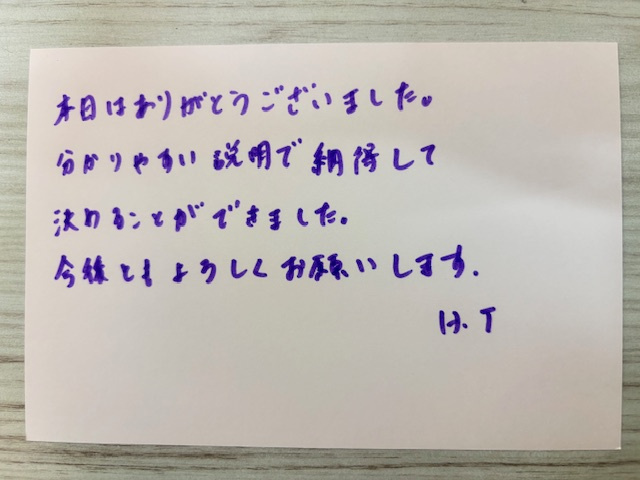 本日はありがとうございました。
分かりやすい説明で納得して
決めることができました。
今後ともよろしくお願いします.
H.T